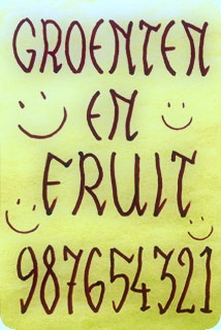 GROENTEN
EN
FRUIT
987654321